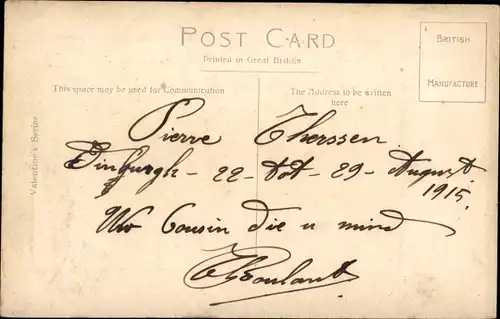 POST CARD
Printed in Great Britain
BRITISH
MANUFACTURE
This space may be used for Communication
The Address to be written
here
Valentine's Series
Pierre Therssen
Edinburgh - 22 tot - 29 - August
1915.
Uw Cousin die u mind